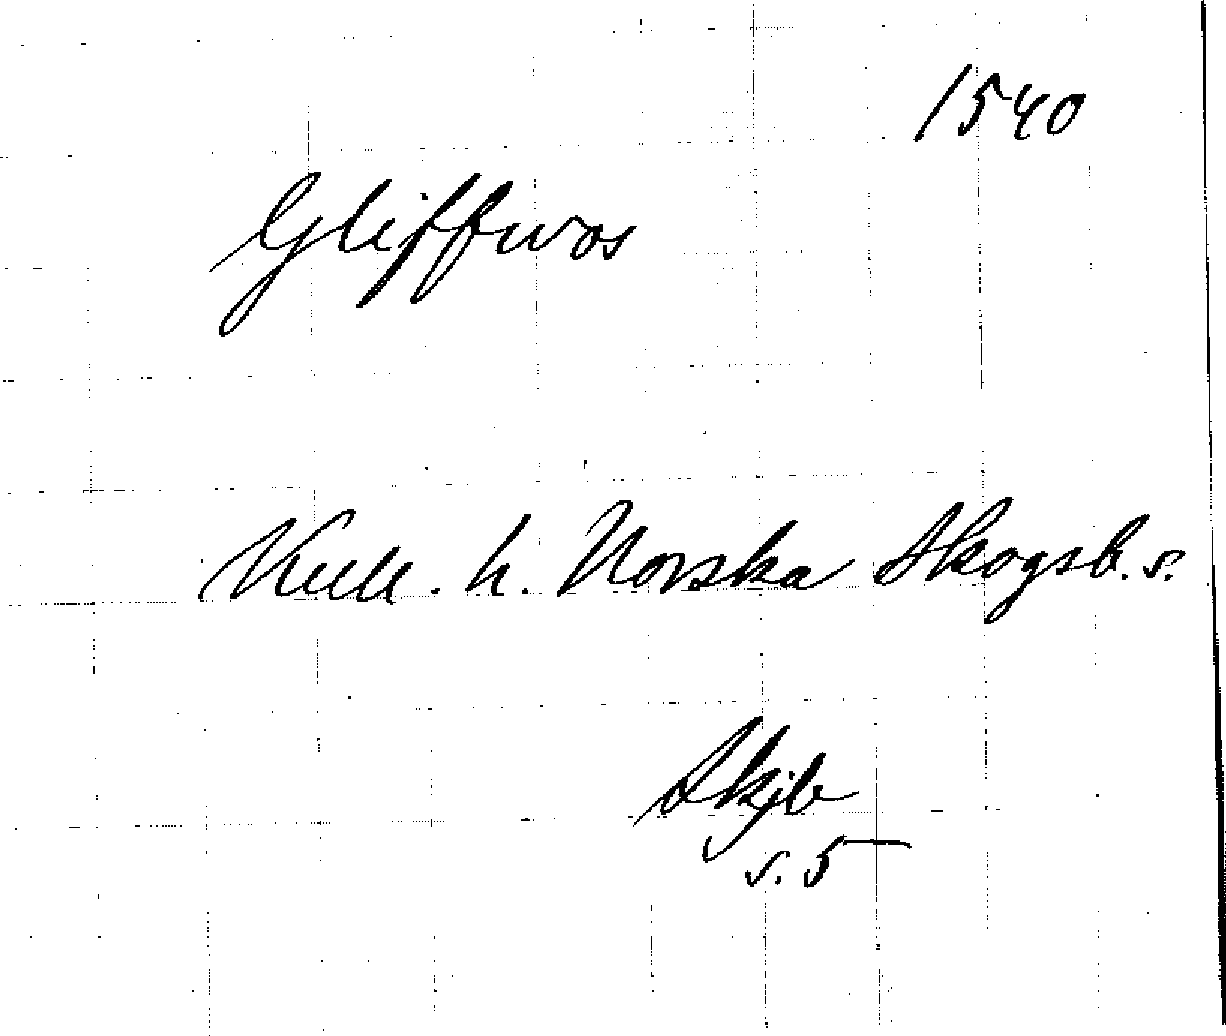 1540
Gliffwos
Kull. h. Norska Skogsb. s.
Skjb
s. 5